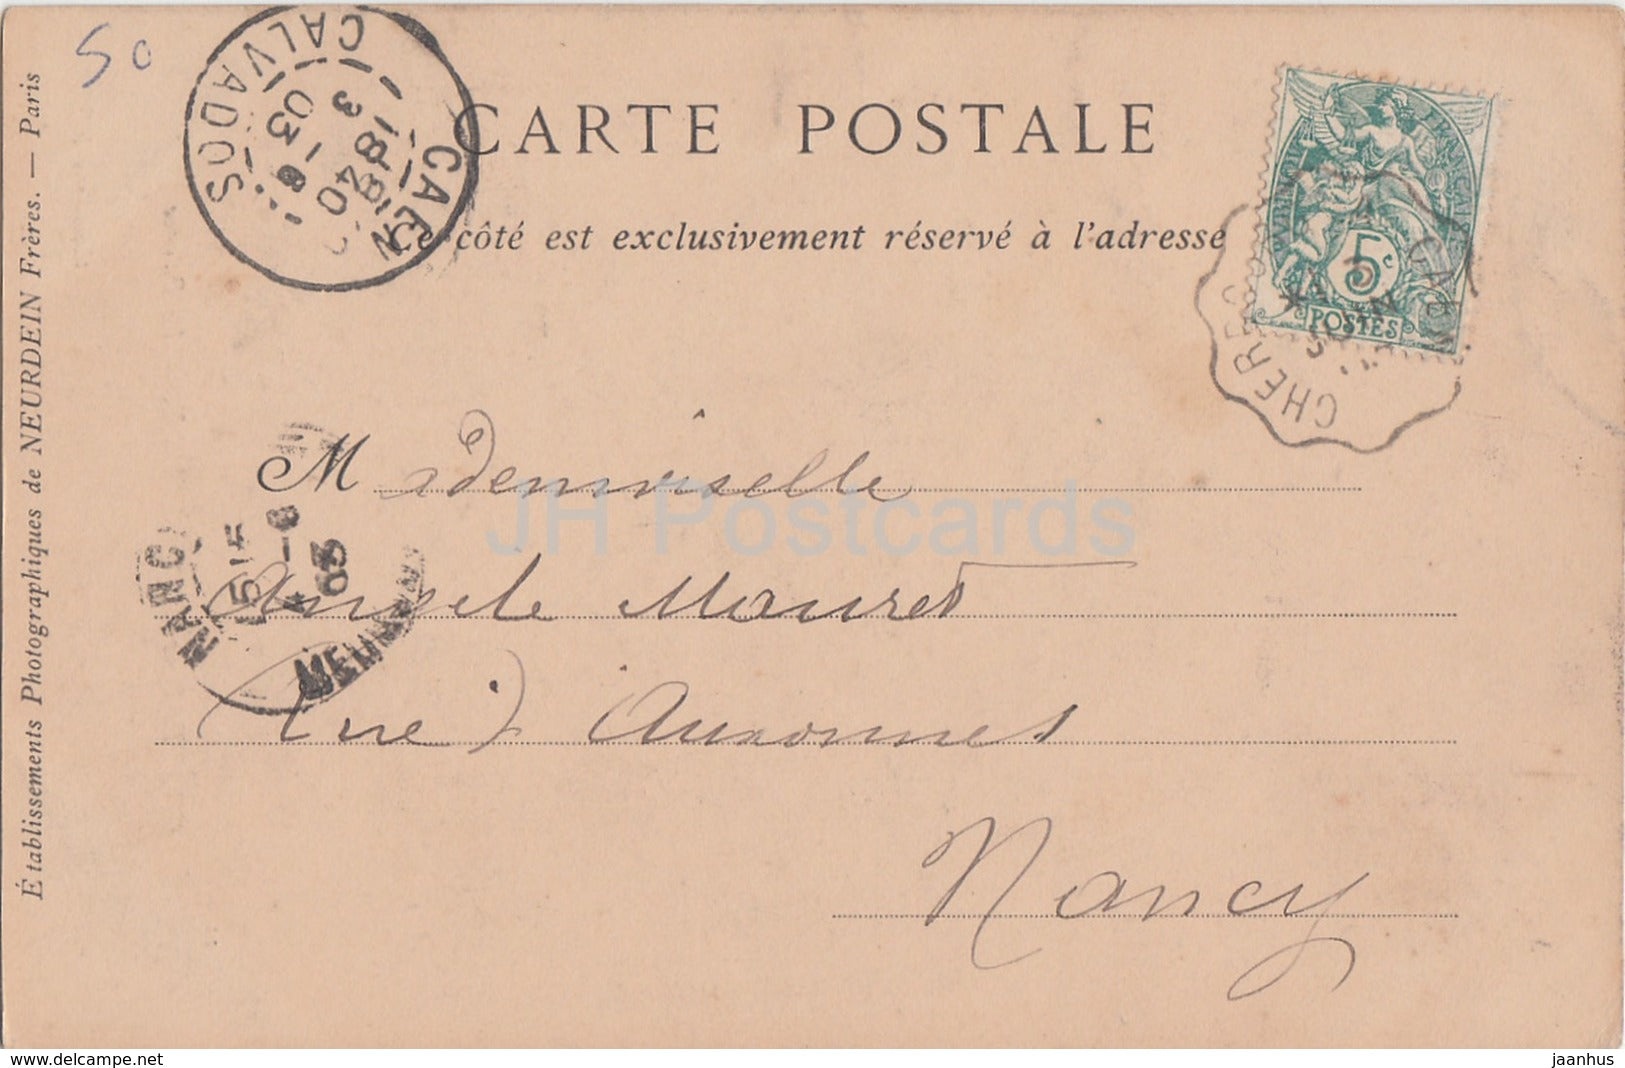 50
CAEN
CALVADOS
18 40
3 -6
03
CARTE POSTALE
Ce côté est exclusivement réservé à l'adresse
RÉPUBLIQUE FRANÇAISE
5c
POSTES
CHERB
CAEN
Mademoiselle
Angele Mauret
rue
NANCY
15
8 -6
03
Nancy
Établissements Photographiques de NEURDEIN Frères. — Paris
JH Postcards
www.delcampe.net
jaanhus